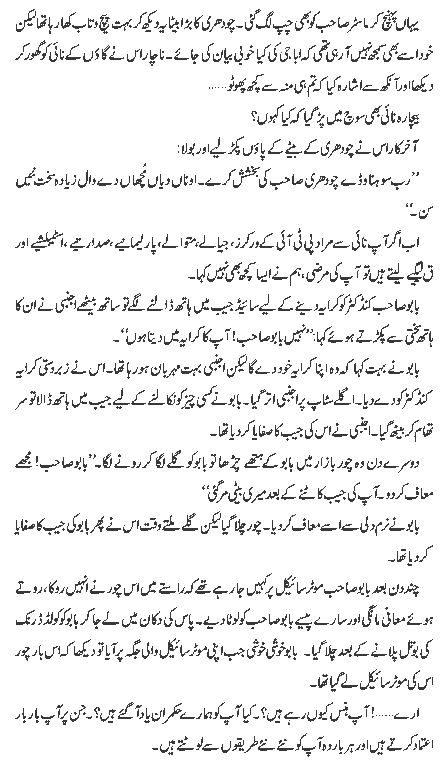 یہاں پہنچ کر ماسٹر صاحب کو بھی چپ لگ گئی۔ چودھری کا بڑا بیٹا یہ دیکھ کر بہت پیچ و تاب کھا رہا تھا لیکن
خود اسے بھی سمجھ نہیں آ رہی تھی کہ ابا جی کی کیا خوبی بیان کی جائے۔ ناچار اس نے گاؤں کے نائی کو گھور کر
دیکھا اور آنکھ سے اشارہ کیا کہ تم ہی منہ سے کچھ پھوٹو......
بیچارہ نائی بھی سوچ میں پڑ گیا کہ کیا کہوں؟
آخر کار اس نے چودھری کے بیٹے کے پاؤں پکڑ لیے اور بولا:
”رب سوہنا وڈے چودھری صاحب کی بخشش کرے۔ اوناں دیاں مُچھاں دے وال زیادہ سخت نہیں
سن۔“
اب اگر آپ نائی سے مراد پی ٹی آئی کے ورکرز، جیالے، متوالے، پارلیمانیے، صدارتیے، اسٹیبلشیے اور
ق لیگیے لیتے ہیں تو آپ کی مرضی، ہم نے ایسا کچھ بھی نہیں کہا۔
بابو صاحب کنڈکٹر کو کرایہ دینے کے لیے سائیڈ جیب میں ہاتھ ڈالنے لگے تو ساتھ بیٹھے اجنبی نے ان کا
ہاتھ سختی سے پکڑتے ہوئے کہا: ”نہیں بابو صاحب! آپ کا کرایہ میں دیتا ہوں“۔
بابو نے بہت کہا کہ وہ اپنا کرایہ خود دے گا لیکن اجنبی بہت مہربان ہو رہا تھا۔ اس نے زبردستی کرایہ
کنڈکٹر کو دے دیا۔ اگلے سٹاپ پر اجنبی اتر گیا۔ بابو نے کسی چیز کو نکالنے کے لیے جیب میں ہاتھ ڈالا تو سر
تھام کر بیٹھ گیا۔ اجنبی نے اس کی جیب کا صفایا کر دیا تھا۔
دوسرے دن وہ چور بازار میں بابو کے ہتھے چڑھا تو بابو کو گلے لگا کر رونے لگا۔ ”بابو صاحب! مجھے
معاف کر دو۔ آپ کی جیب کاٹنے کے بعد میری بیٹی مر گئی“
بابو نے نرم دلی سے اسے معاف کر دیا۔ چور چلا گیا لیکن گلے ملتے وقت اس نے پھر بابو کی جیب کا صفایا
کر دیا تھا۔
چند دن بعد بابو صاحب موٹر سائیکل پر کہیں جا رہے تھے کہ راستے میں اس چور نے انہیں روکا، روتے
ہوئے معافی مانگی اور سارے پیسے بابو صاحب کو لوٹا دیے۔ پاس کی دکان میں لے جا کر بابو کو کولڈ ڈرنک
کی بوتل پلانے کے بعد چلا گیا۔ بابو خوشی خوشی جب اپنی موٹر سائیکل والی جگہ پر آیا تو دیکھا کہ اس بار چور
اس کی موٹر سائیکل لے گیا تھا۔
ارے......! آپ ہنس کیوں رہے ہیں؟۔ کیا آپ کو ہمارے حکمران یاد آ گئے ہیں؟۔ جن پر آپ بار بار
اعتماد کرتے ہیں اور ہر بار وہ آپ کو نئے نئے طریقوں سے لوٹتے ہیں۔